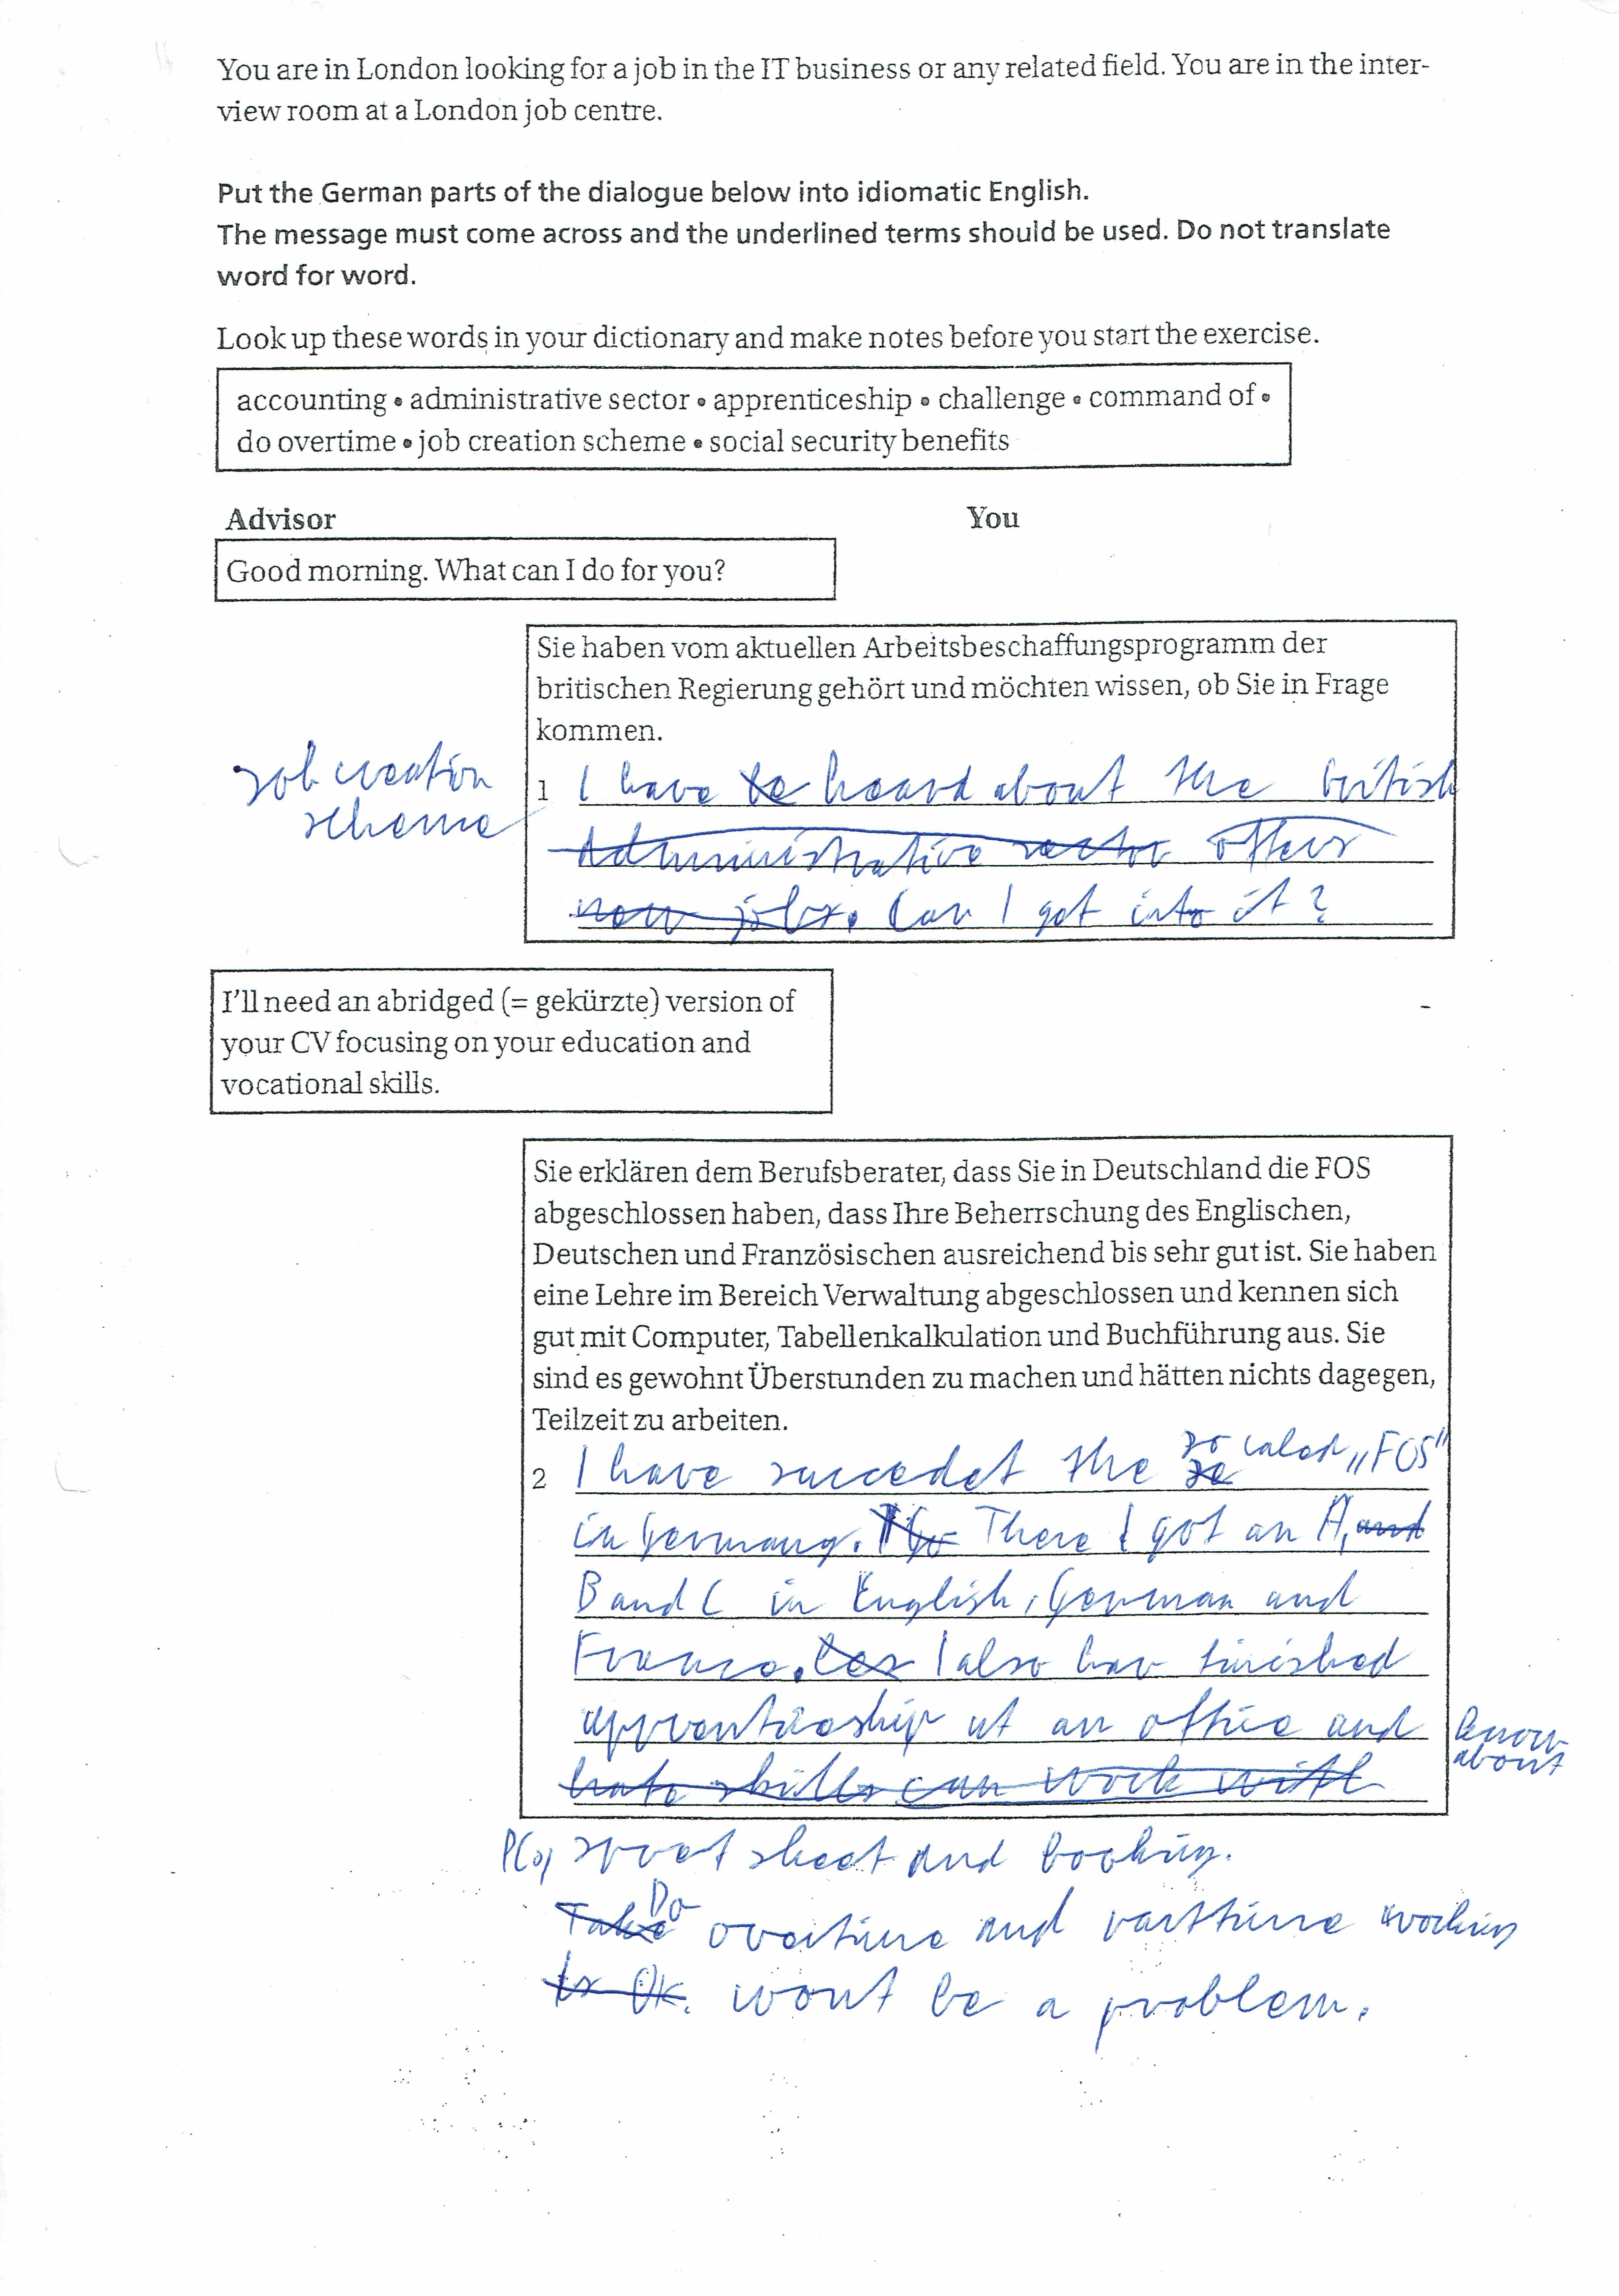 You are in London looking for a job in the IT business or any related field. You are in the inter-
view room at a London job centre.
Put the German parts of the dialogue below into idiomatic English.
The message must come across and the underlined terms should be used. Do not translate
word for word.
Look up these words in your dictionary and make notes before you start the exercise.
accounting • administrative sector • apprenticeship • challenge • command of •
do overtime • job creation scheme • social security benefits
Advisor You
Good morning. What can I do for you?
Sie haben vom aktuellen Arbeitsbeschaffungsprogramm der
britischen Regierung gehört und möchten wissen, ob Sie in Frage
kommen.
job creation
scheme
1 I have heard about the british
Administrative sector offers
new jobs. Can I get into it?
I'll need an abridged (= gekürzte) version of
your CV focusing on your education and
vocational skills.
Sie erklären dem Berufsberater, dass Sie in Deutschland die FOS
abgeschlossen haben, dass Ihre Beherrschung des Englischen,
Deutschen und Französischen ausreichend bis sehr gut ist. Sie haben
eine Lehre im Bereich Verwaltung abgeschlossen und kennen sich
gut mit Computer, Tabellenkalkulation und Buchführung aus. Sie
sind es gewohnt Überstunden zu machen und hätten nichts dagegen,
Teilzeit zu arbeiten.
2 I have succedet the so caled „FOS"
in Germany. There I got an A, and
B and C in English, German and
France. I also hav finished
apprenticeship at an office and know
about
skills can work with
PCs, spreet sheet and booking.
Take Do overtime and parttime working
is OK. wont be a problem.